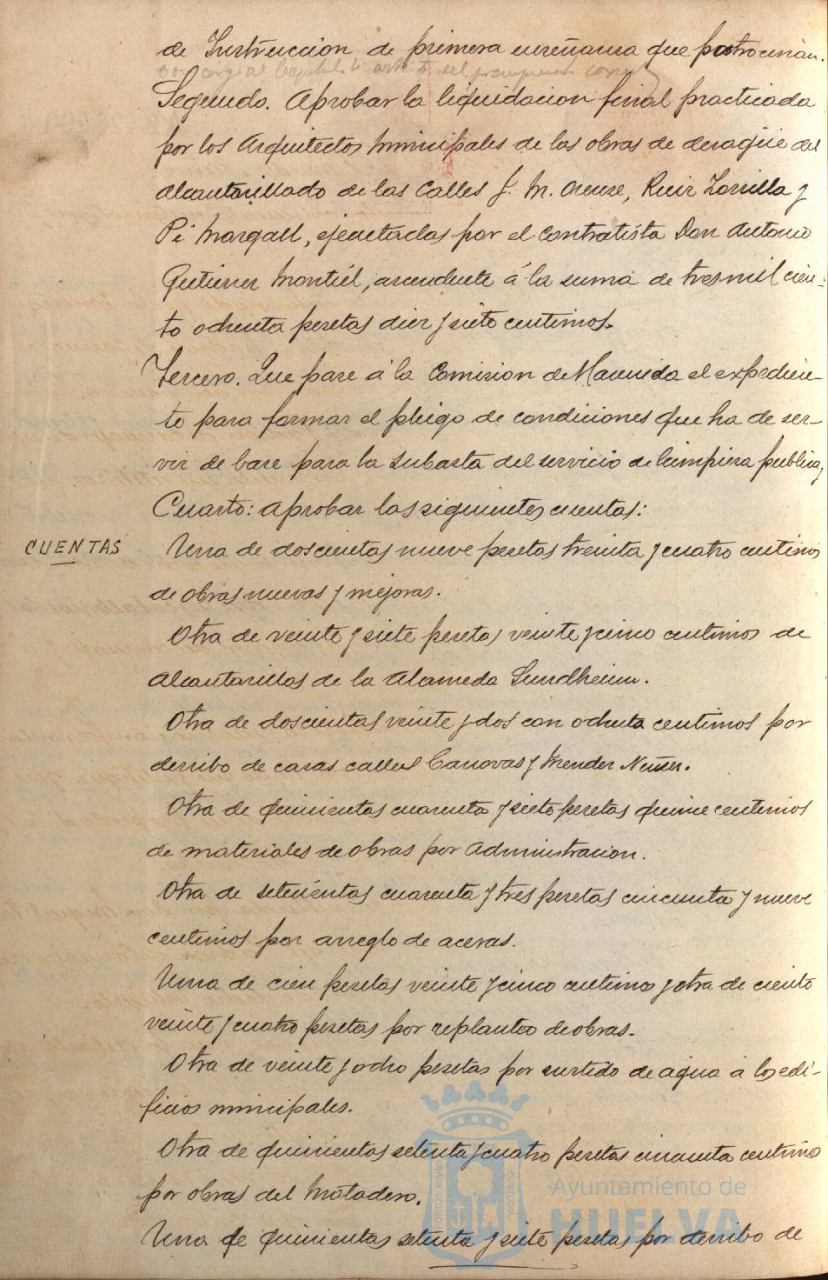 de Instruccion de primera enseñanza que patrocinan.
con cargo al Capitulo 4 artº del presupuesto
Segundo. Aprobar la liquidacion final practicada
por los Arquitectos municipales de las obras de desagüe del
alcantarillado de las Calles J. M. Orense, Ruiz Zorrilla y
Pi Margall, ejecutadas por el contratista Don Antonio
Gutierrez Montiel, ascendente á la suma de tres mil cien-
to ochenta pesetas diez y siete centimos.
Tercero. Que pase á la Comision de Hacienda el expedien-
te para formar el pliego de condiciones que ha de ser-
vir de base para la subasta del servicio de limpieza publica,
Cuarto: aprobar las siguientes cuentas:
CUENTAS
Una de doscientas nueve pesetas treinta y cuatro centimos
de obras nuevas y mejoras.
Otra de veinte y siete pesetas veinte y cinco centimos de
alcantarillas de la Alameda Sundheim.
Otra de doscientas veinte y dos con ochenta centimos por
derribo de casas calles Canovas y Mendez Nuñez.
Otra de quinientas cuarenta y siete pesetas quince centimos
de materiales de obras por administracion.
Otra de setecientas cuarenta y tres pesetas cincuenta y nueve
centimos por arreglo de aceras.
Una de cien pesetas veinte y cinco centimos y otra de ciento
veinte y cuatro pesetas por replanteo de obras.
Otra de veinte y ocho pesetas por surtido de agua á los edi-
ficios municipales.
Otra de quinientas setenta y cuatro pesetas cincuenta centimos
por obras del Matadero.
Una de quinientas setenta y siete pesetas por derribo de
Ayuntamiento de
HUELVA